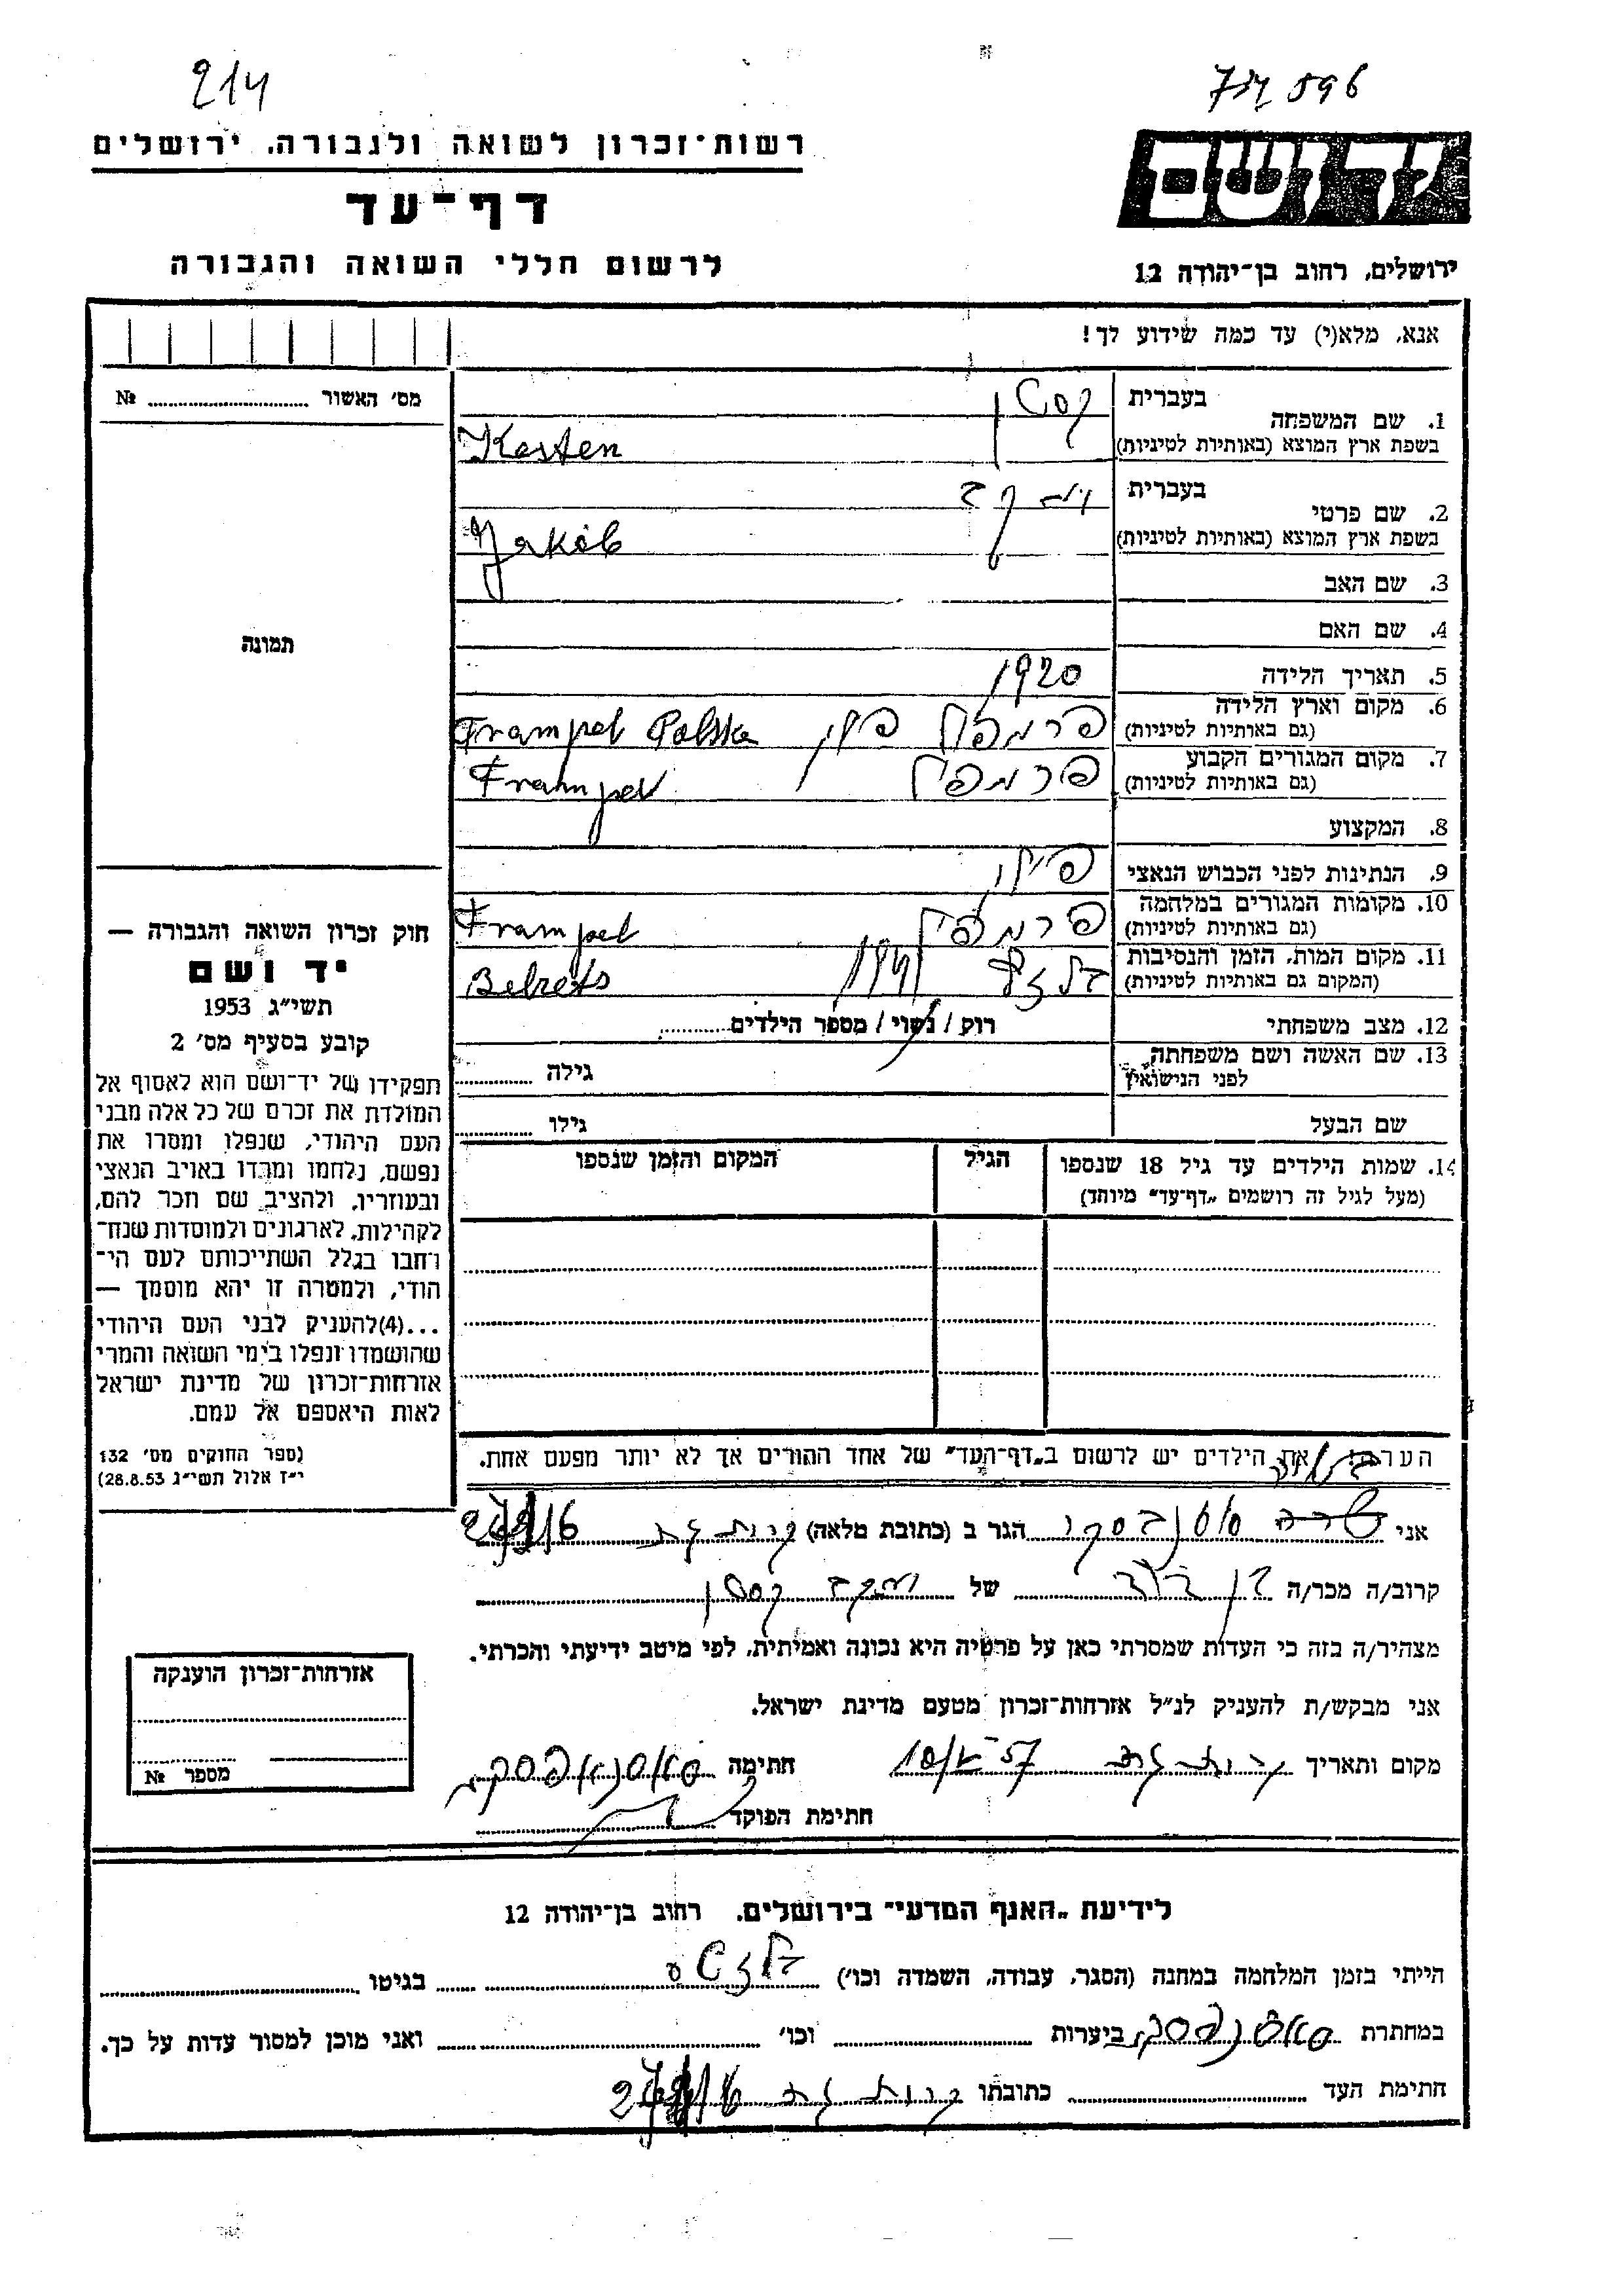 214
רשות־זכרון לשואה ולגבורה. ירושלים
דף־עד
לרשום חללי השואה והגבורה
יד ושם
ירושלים, רחוב בן־יהודה 12
אנא, מלא(י) עד כמה שידוע לך!
מס׳ האשור № 
תמונה
1. שם המשפחה בעברית קסטן
בשפת ארץ המוצא (באותיות לטיניות) Kesten
2. שם פרטי בעברית יעקב
בשפת ארץ המוצא (באותיות לטיניות) Jakób
3. שם האב
4. שם האם
5. תאריך הלידה 1920
6. מקום וארץ הלידה פרמפול פולין Frampol Polska
(גם באותיות לטיניות)
7. מקום המגורים הקבוע פרמפול Frampol
(גם באותיות לטיניות)
8. המקצוע
9. הנתינות לפני הכבוש הנאצי פולין
10. מקומות המגורים במלחמה פרמפול Frampol
(גם באותיות לטיניות)
11. מקום המות. הזמן והנסיבות 1941
(המקום גם באותיות לטיניות)
12. מצב משפחתי רוק / נשוי / מספר הילדים
13. שם האשה ושם משפחתה גילה
לפני הנישואין
שם הבעל גילו
14. שמות הילדים עד גיל 18 שנספו הגיל המקום והזמן שנספו
(מעל לגיל זה רושמים „דף־עד״ מיוחד)
חוק זכרון השואה והגבורה —
יד ושם
תשי״ג 1953
קובע בסעיף מס׳ 2
תפקידו של יד־ושם הוא לאסוף אל
המולדת את זכרם של כל אלה מבני
העם היהודי, שנפלו ומסרו את
נפשם, נלחמו ומרדו באויב הנאצי
ובעוזריו, ולהציב שם וזכר להם,
לקהילות, לארגונים ולמוסדות שנח־
רבו בגלל השתייכותם לעם הי־
הודי, ולמטרה זו יהא מוסמך —
...(4)להעניק לבני העם היהודי
שהושמדו ונפלו בימי השואה והמרי
אזרחות־זכרון של מדינת ישראל
לאות היאספם אל עמם.
(ספר החוקים מס׳ 132
י״ז אלול תשי״ג 28.8.53)
הערה: את הילדים יש לרשום ב„דף־העד״ של אחד ההורים אך לא יותר מפעם אחת.
אני הגר ב (כתובת מלאה) קרית גת
קרוב/ה מכר/ה בן דוד של יעקב קסטן
מצהיר/ה בזה כי העדות שמסרתי כאן על פרטיה היא נכונה ואמיתית, לפי מיטב ידיעתי והכרתי.
אני מבקש/ת להעניק לנ״ל אזרחות־זכרון מטעם מדינת ישראל.
מקום ותאריך קרית גת חתימה
חתימת הפוקד
אזרחות־זכרון הוענקה
מספר №
לידיעת „האגף המדעי״ בירושלים. רחוב בן־יהודה 12
הייתי בזמן המלחמה במחנה (הסגר, עבודה, השמדה וכו׳) בגיטו
במחתרת ביערות וכו׳ ואני מוכן למסור עדות על כך.
חתימת העד כתובתו קרית גת